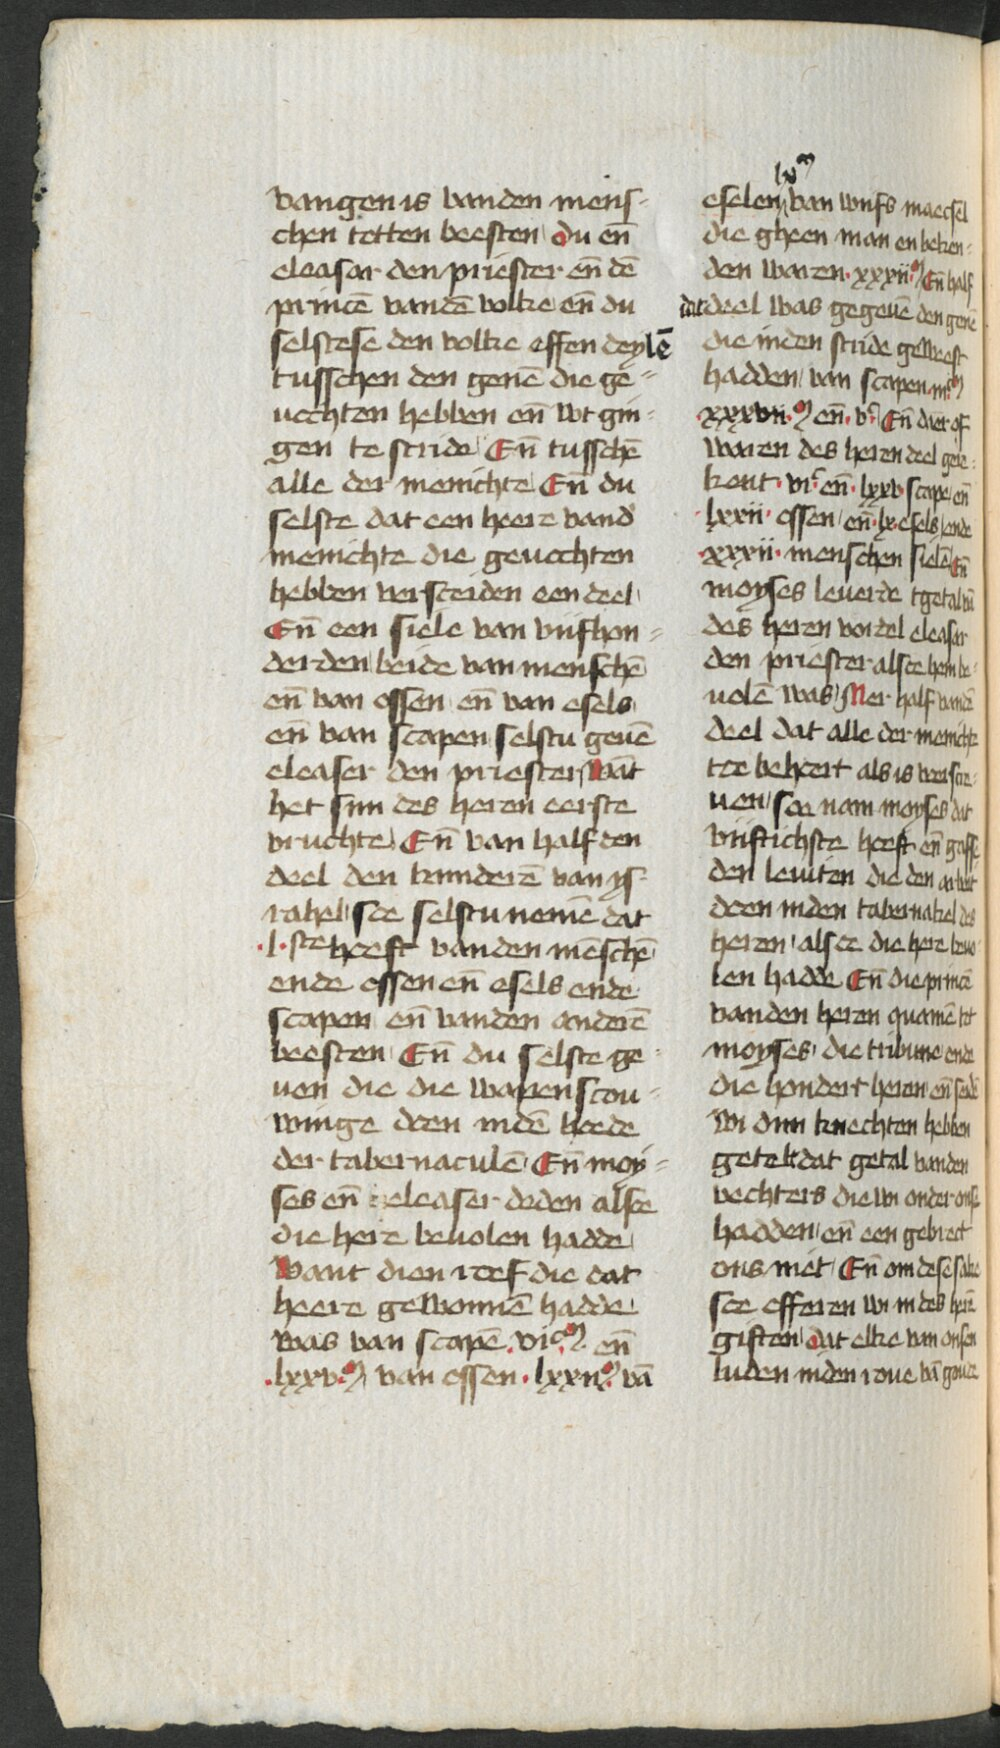 vangen is vanden mens-
chen totten beesten du eñ
eleasar den priester eñ dē
princē vandē volke eñ du
selstese den volke effen deylē
tusschen den genē die ge-
uochten hebben eñ wt gin-
gen te stride Eñ tusschē
alle der menichte Eñ du
selste dat een heere vand
menichte die geuochten
hebben versceiden een deel
Eñ een siele van vijfhon-
derden beide van menschē
eñ van ossen eñ van esels
eñ van scapen selstu geuē
eleaser den priester Wāt
het sijn des heren eerste
vruchte Eñ van half den
deel den kinderē van ys-
rahel soe selstu nemē dat
.l.ste hooft vanden mēschē
ende ossen eñ esels ende
scapen eñ vanden anderē
beesten Eñ du selste ge-
uen die die waren scou-
winge doen indē hoede
der tabernaculē Eñ moy-
ses eñ eleaser deden alsoe
die here beuolen hadde
Want dien roef die dat
heere gewonnē hadde
was van scapē .vicm. eñ
.lxxv.m van ossen .lxxiim. vā
lxm
eselen van wijfs maecsel
die gheen man en beken-
den waren .xxxiim. Eñ half
dat deel was gegeuē den genē
die inden stride geweest
hadden van scapen iiicm
.xxxvii.m eñ .vc Eñ daer of
waren des heren deel gere-
kent .vic eñ .lxxv scape eñ
.lxxii. ossen eñ .lx. esels ende
.xxxii. menschen sielē Eñ
moyses leuerde tgetal vā
des heren vordel eleasar
den priester alsoe hem be-
uolē was Mer half vandē
deel dat alle der menichte
toe behoert als is versce-
uen soe nam moyses dat
vijftichste hooft eñ gafse
den leuiten die den arbeit
doen inden tabernakel des
heren alsoe die here beuo-
len hadde Eñ die princē
vanden heren quamē tot
moyses die tribune ende
die hondert heren eñ seidē
Wi dijn knechten hebben
getelt dat getal vanden
vechters die wi onder onse
hadden eñ een gebrect
ons niet Eñ om dese sake
soe offeren wi in des herē
giften dat elke van onsen
luden inden roue vā goude